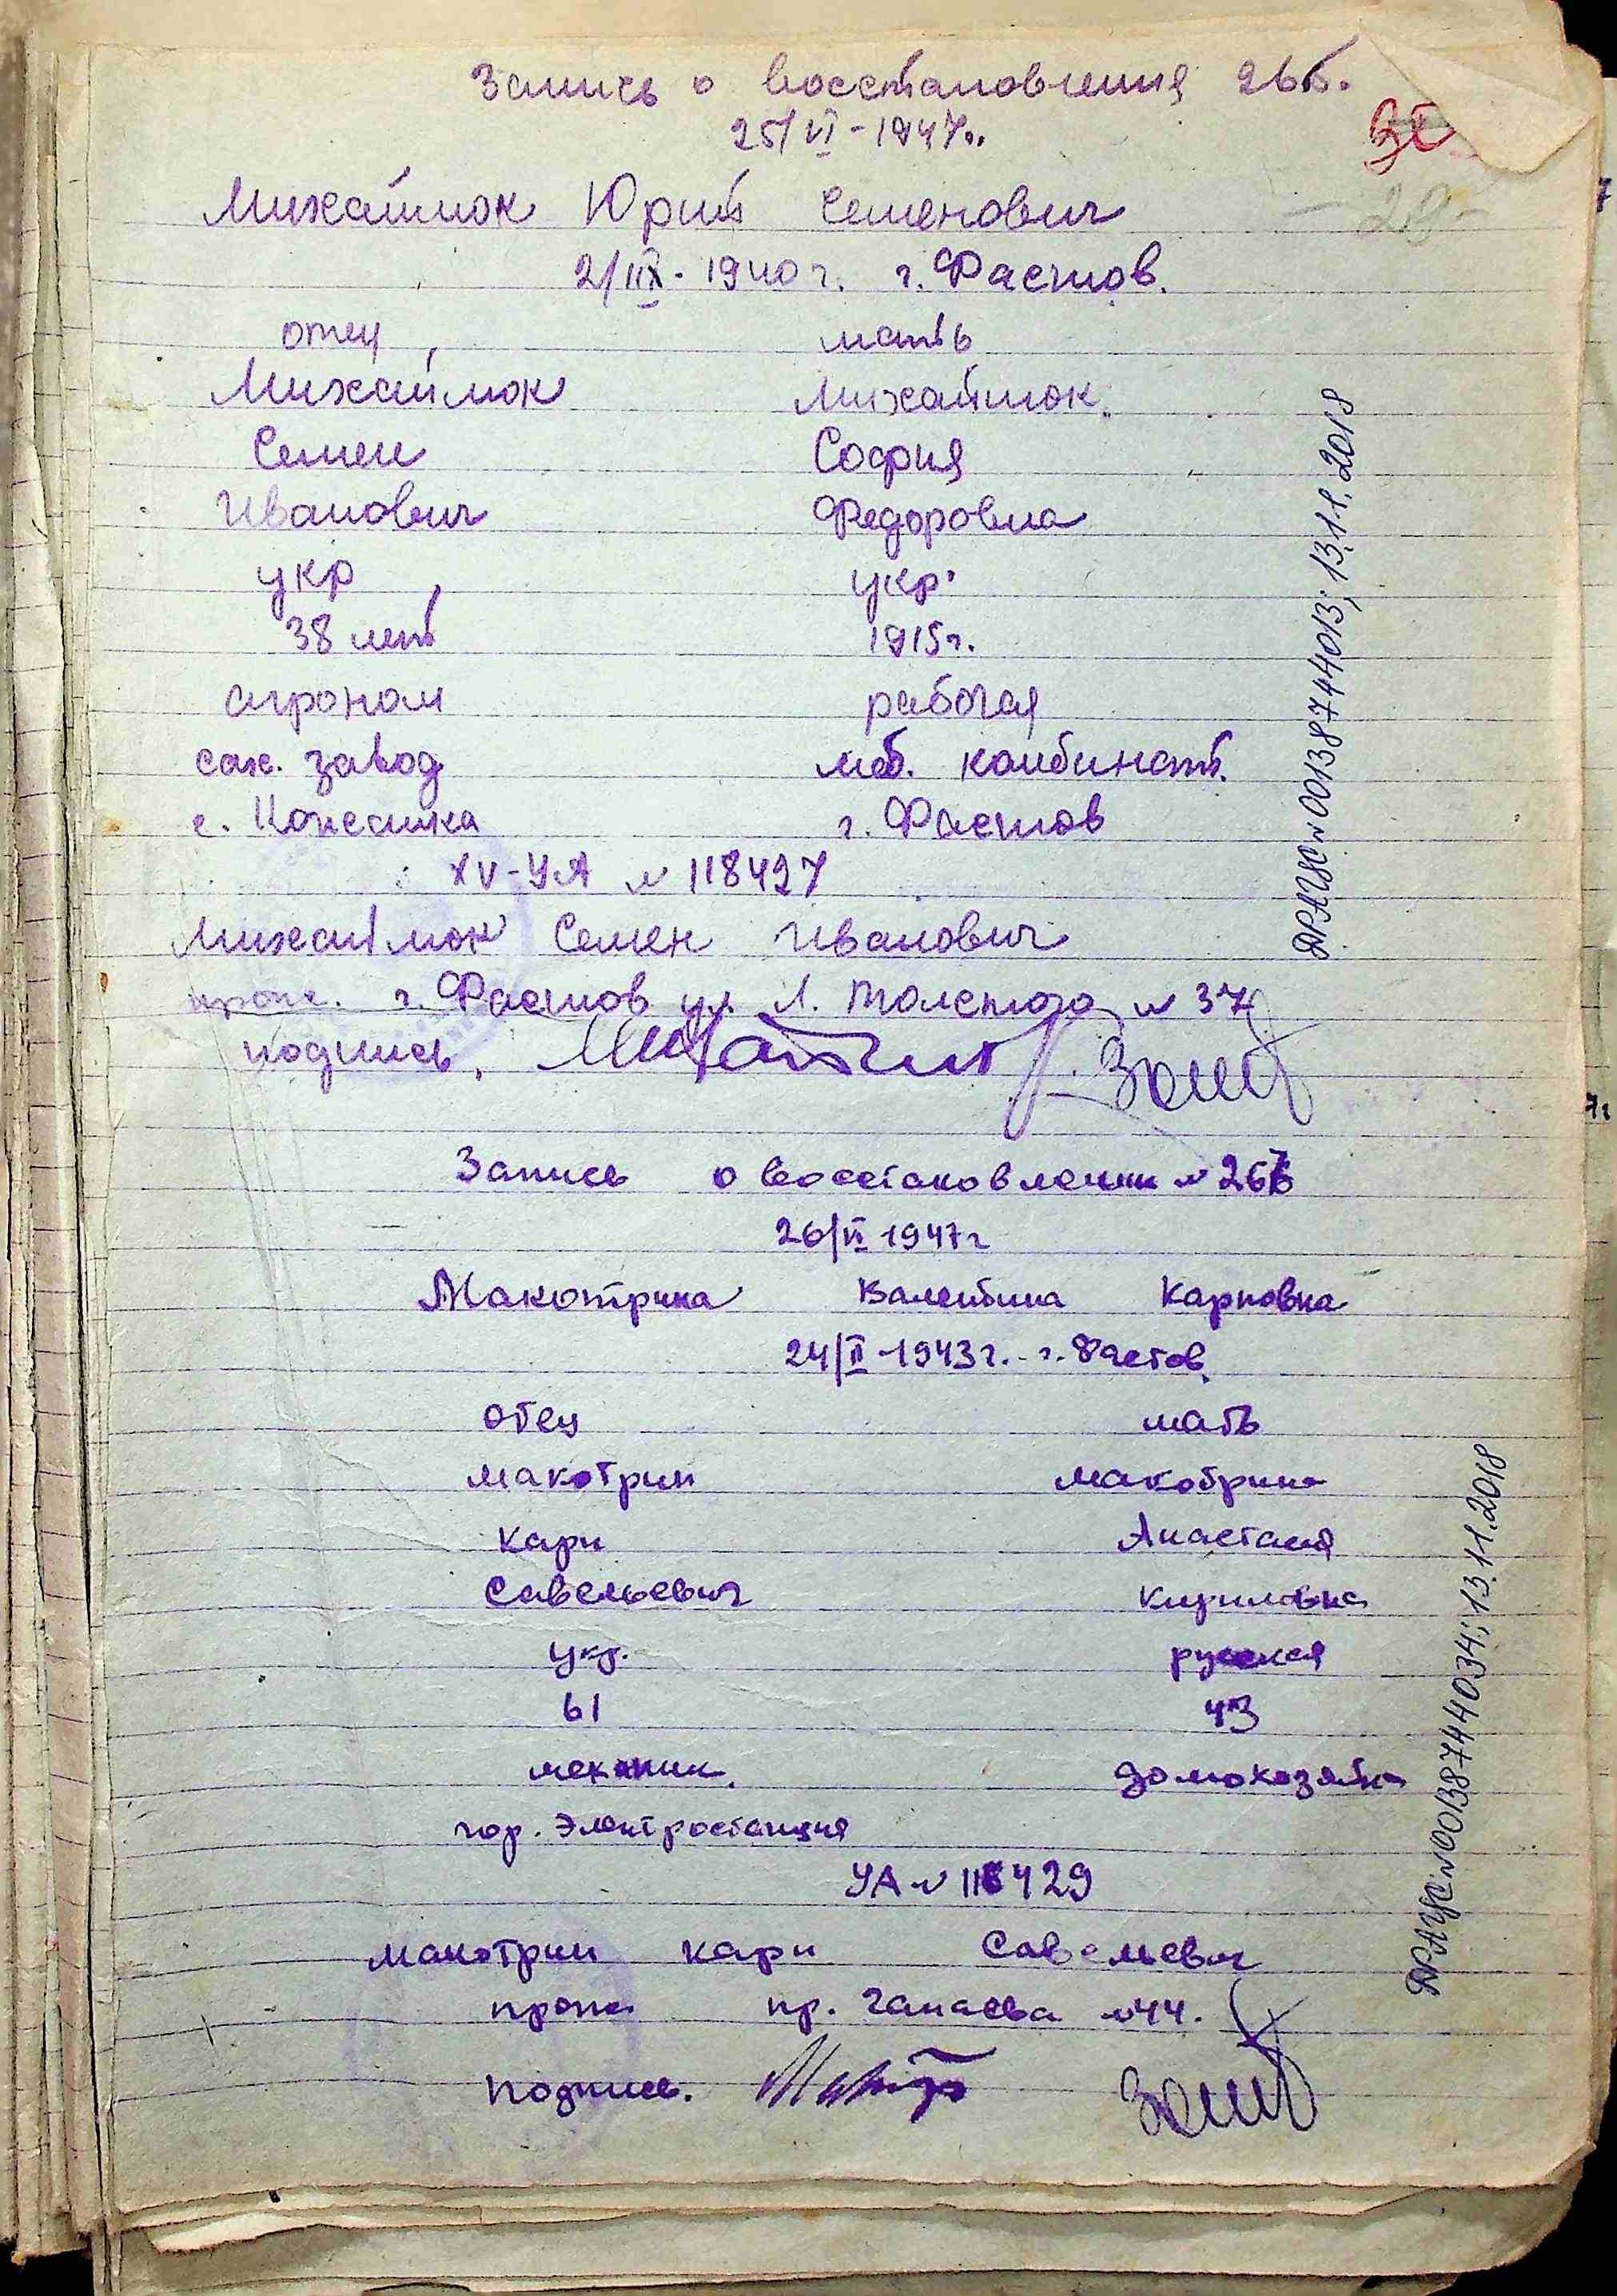 Запись о восстановления 265.
25/VI-1947г.
Михайлюк Юрий Семенович
2/IX-1940 г. г. Фастов.
отец мать
Михайлюк Михайлюк
Семен София
Иванович Федоровна
укр укр.
38 лет 1915г.
агроном рабочая
сах. завод меб. комбинат.
с. г. Фастов
XV-УА № 118427
Михайлюк Семен Иванович
прож. г. Фастов ул. Л. Толстого № 37
подпись.
Запись о восстановлении № 266
26/VI 1947г
Макотрина Валентина Карповна
24/II-1943г. г. Фастов.
отец мать
Макотрин Макотрина
Карп Анастасия
Савельевич Кириловна
Укр. русская
61 43
механик. домохозяйка
гор. Электростанция
УА № 118429
Макотрин Карп Савельевич
прож пр. Чапаева №44.
подпись.
ДРАЦС №00138744013; 13.11.2018
ДРАЦС №00138744034; 13.11.2018